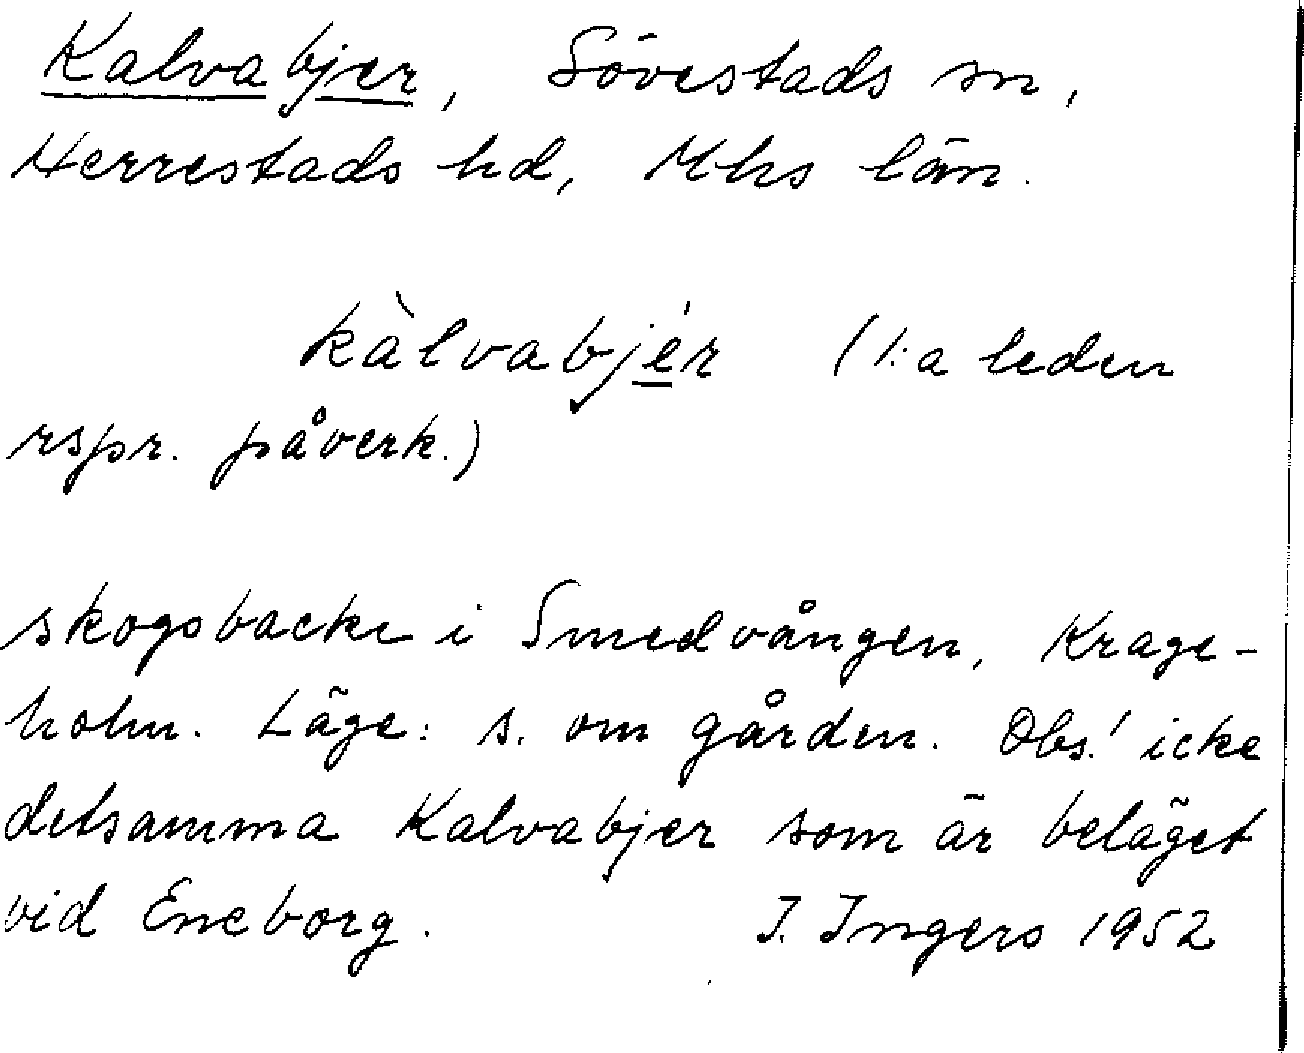 Kalvabjer, Sövestads sn,
Herrestads hd, Mhs län.
kàlvabjér (1:a leden
rspr. påverk.)
skogsbacke i Smedvången, Krage-
holm. Läge: s. om gården. Obs.! icke
detsamma Kalvabjer som är beläget
vid Eneborg. I. Ingers 1952